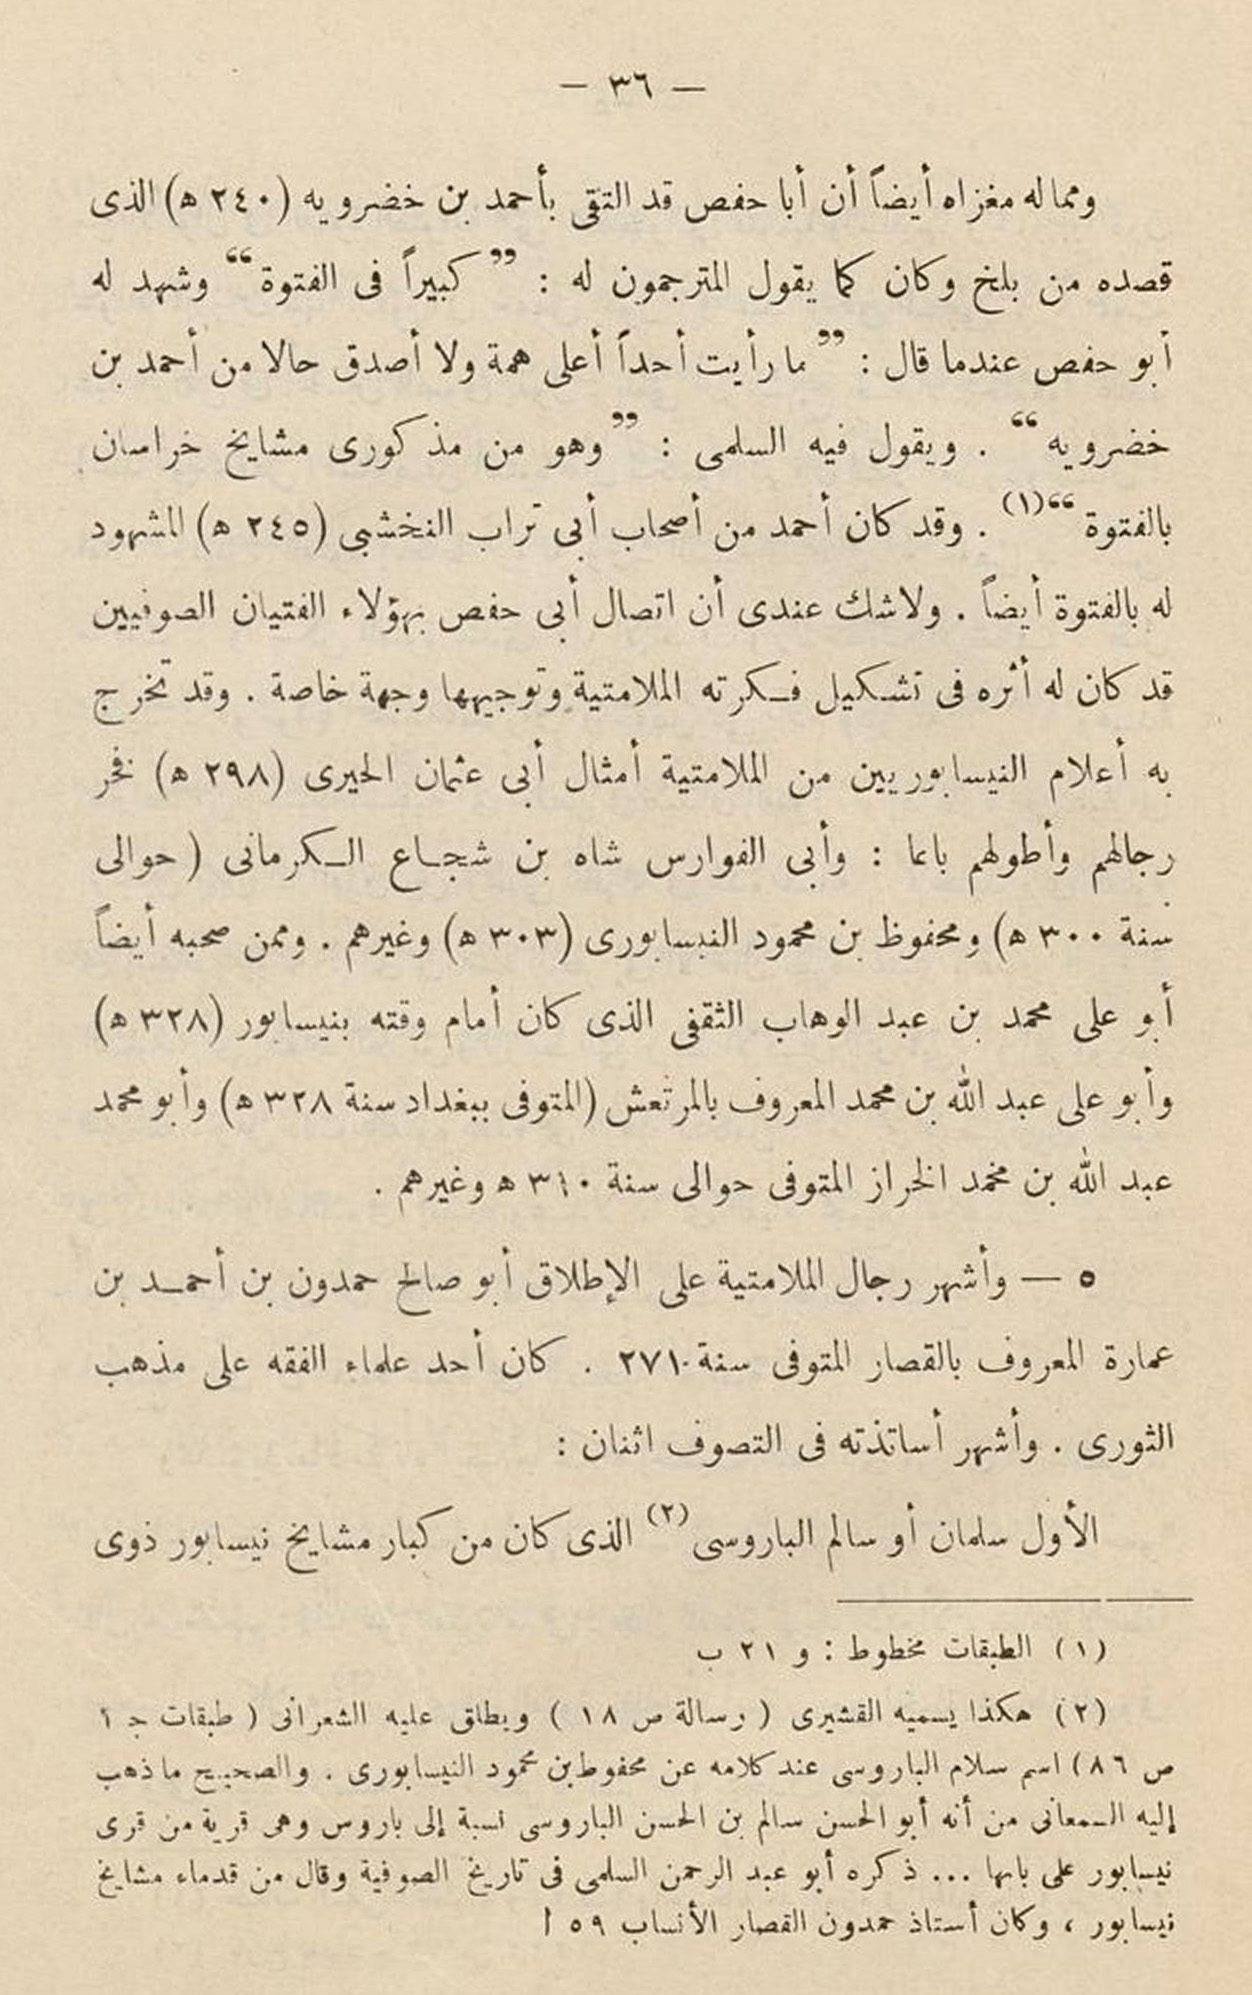 — ٣٦ —
ومما له مغزاه أيضاً أن أبا حفص قد التقى بأحمد بن خضرويه (٢٤٠ ه) الذى
قصده من بلخ وكان كما يقول المترجمون له : ”كبيراً فى الفتوة“ وشهد له
أبو حفص عندما قال : ”ما رأيت أحداً أعلى همة ولا أصدق حالا من أحمد بن
خضرويه“ . ويقول فيه السلمى : ”وهو من مذكورى مشايخ خراسان
بالفتوة“(١) . وقد كان أحمد من أصحاب أبى تراب النخشبى (٢٤٥ ه) المشهود
له بالفتوة أيضاً . ولاشك عندى أن اتصال أبى حفص بهؤلاء الفتيان الصوفيين
قد كان له أثره فى تشكيل فكرته الملامتية وتوجيهها وجهة خاصة . وقد تخرج
به أعلام النيسابوريين من الملامتية أمثال أبى عثمان الحيرى (٢٩٨ ه) فخر
رجالهم وأطولهم باعا : وأبى الفوارس شاه بن شجاع الكرمانى ( حوالى
سنة ٣٠٠ ه) ومحفوظ بن محمود النيسابورى (٣٠٣ ه) وغيرهم . وممن صحبه أيضاً
أبو على محمد بن عبد الوهاب الثقفى الذى كان أمام وقته بنيسابور (٣٢٨ ه)
وأبو على عبد الله بن محمد المعروف بالمرتعش (المتوفى ببغداد سنة ٣٢٨ ه) وأبو محمد
عبد الله بن محمد الخراز المتوفى حوالى سنة ٣١٠ ه وغيرهم .
٥ — وأشهر رجال الملامتية على الإطلاق أبو صالح حمدون بن أحمد بن
عمارة المعروف بالقصار المتوفى سنة ٢٧١ . كان أحد علماء الفقه على مذهب
الثورى . وأشهر أساتذته فى التصوف اثنان :
الأول سلمان أو سالم الباروسى(٢) الذى كان من كبار مشايخ نيسابور ذوى
(١) الطبقات مخطوط : و ٢١ ب
(٢) هكذا يسميه القشيرى ( رسالة ص ١٨ ) ويطلق عليه الشعرانى ( طبقات ج ١
ص ٨٦) اسم سلام الباروسى عند كلامه عن محفوط بن محمود النيسابورى . والصحيح ما ذهب
إليه السمعانى من أنه أبو الحسن سالم بن الحسن الباروسى نسبة إلى باروس وهى قرية من قرى
نيسابور على بابها ... ذكره أبو عبد الرحمن السلمى فى تاريخ الصوفية وقال من قدماء مشايخ
نيسابور ، وكان أستاذ حمدون القصار الأنساب ٥٩ ا